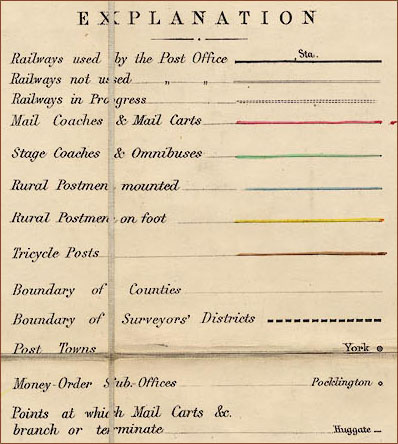 EXPLANATION
Railways used by the Post Office Sta.
Railways not used „ „
Railways in Progress
Mail Coaches & Mail Carts
Stage Coaches & Omnibuses
Rural Postmen mounted
Rural Postmen on foot
Tricycle Posts
Boundary of Counties
Boundary of Surveyors' Districts
Post Towns York
Money-Order Sub-Offices Pocklington
Points at which Mail Carts &c.
branch or terminate Huggate